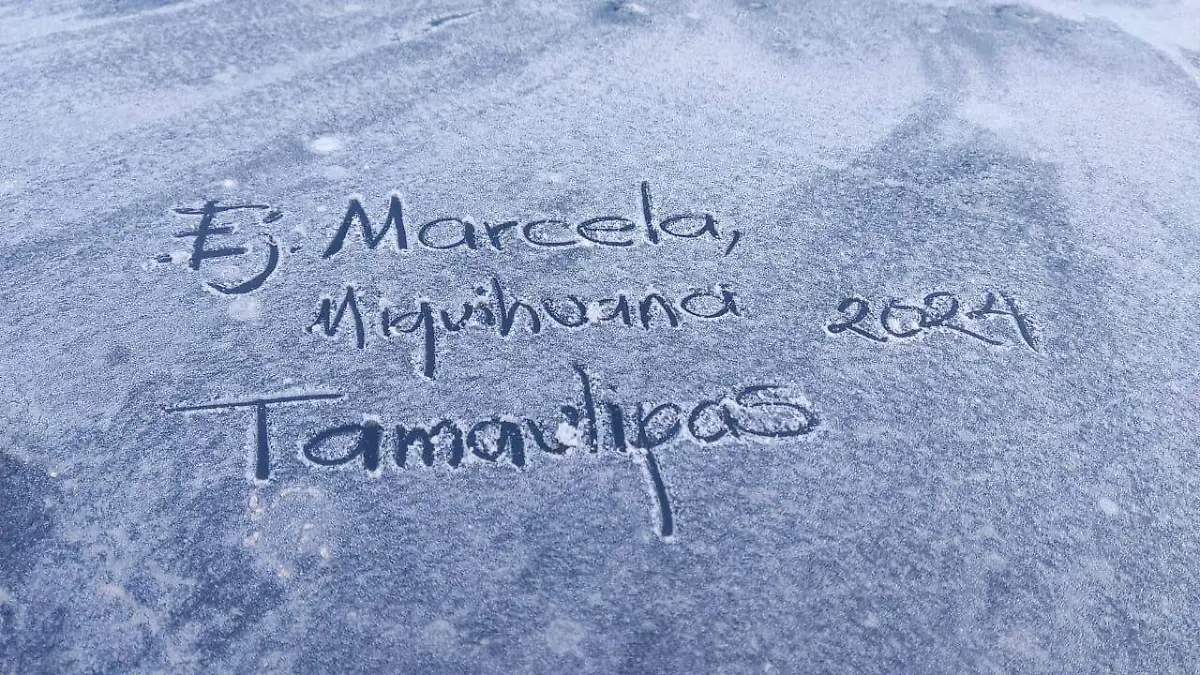 Ej. Marcela,
Miquihuana 2024
Tamaulipas